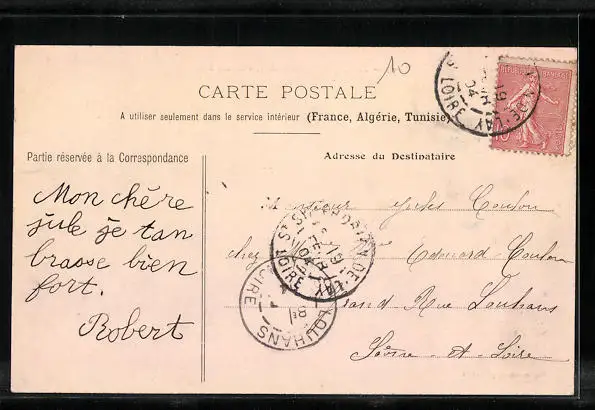 10
CARTE POSTALE
A utiliser seulement dans le service intérieur (France, Algérie, Tunisie)
Partie réservée à la Correspondance
Adresse du Destinataire
Mon chère
jule je tan
brasse bien
fort.
Robert
Monsieur Jules Coulon
chez Edouard Coulon
Grand Rue Louhans
Saône et Loire
REPUBLIQUE FRANÇAISE
10
DE-LAY
LOIRE
19
04
ST SYMPHORIEN-DE-LAY
19
FEVR
04
LOIRE
LOUHANS
LOIRE